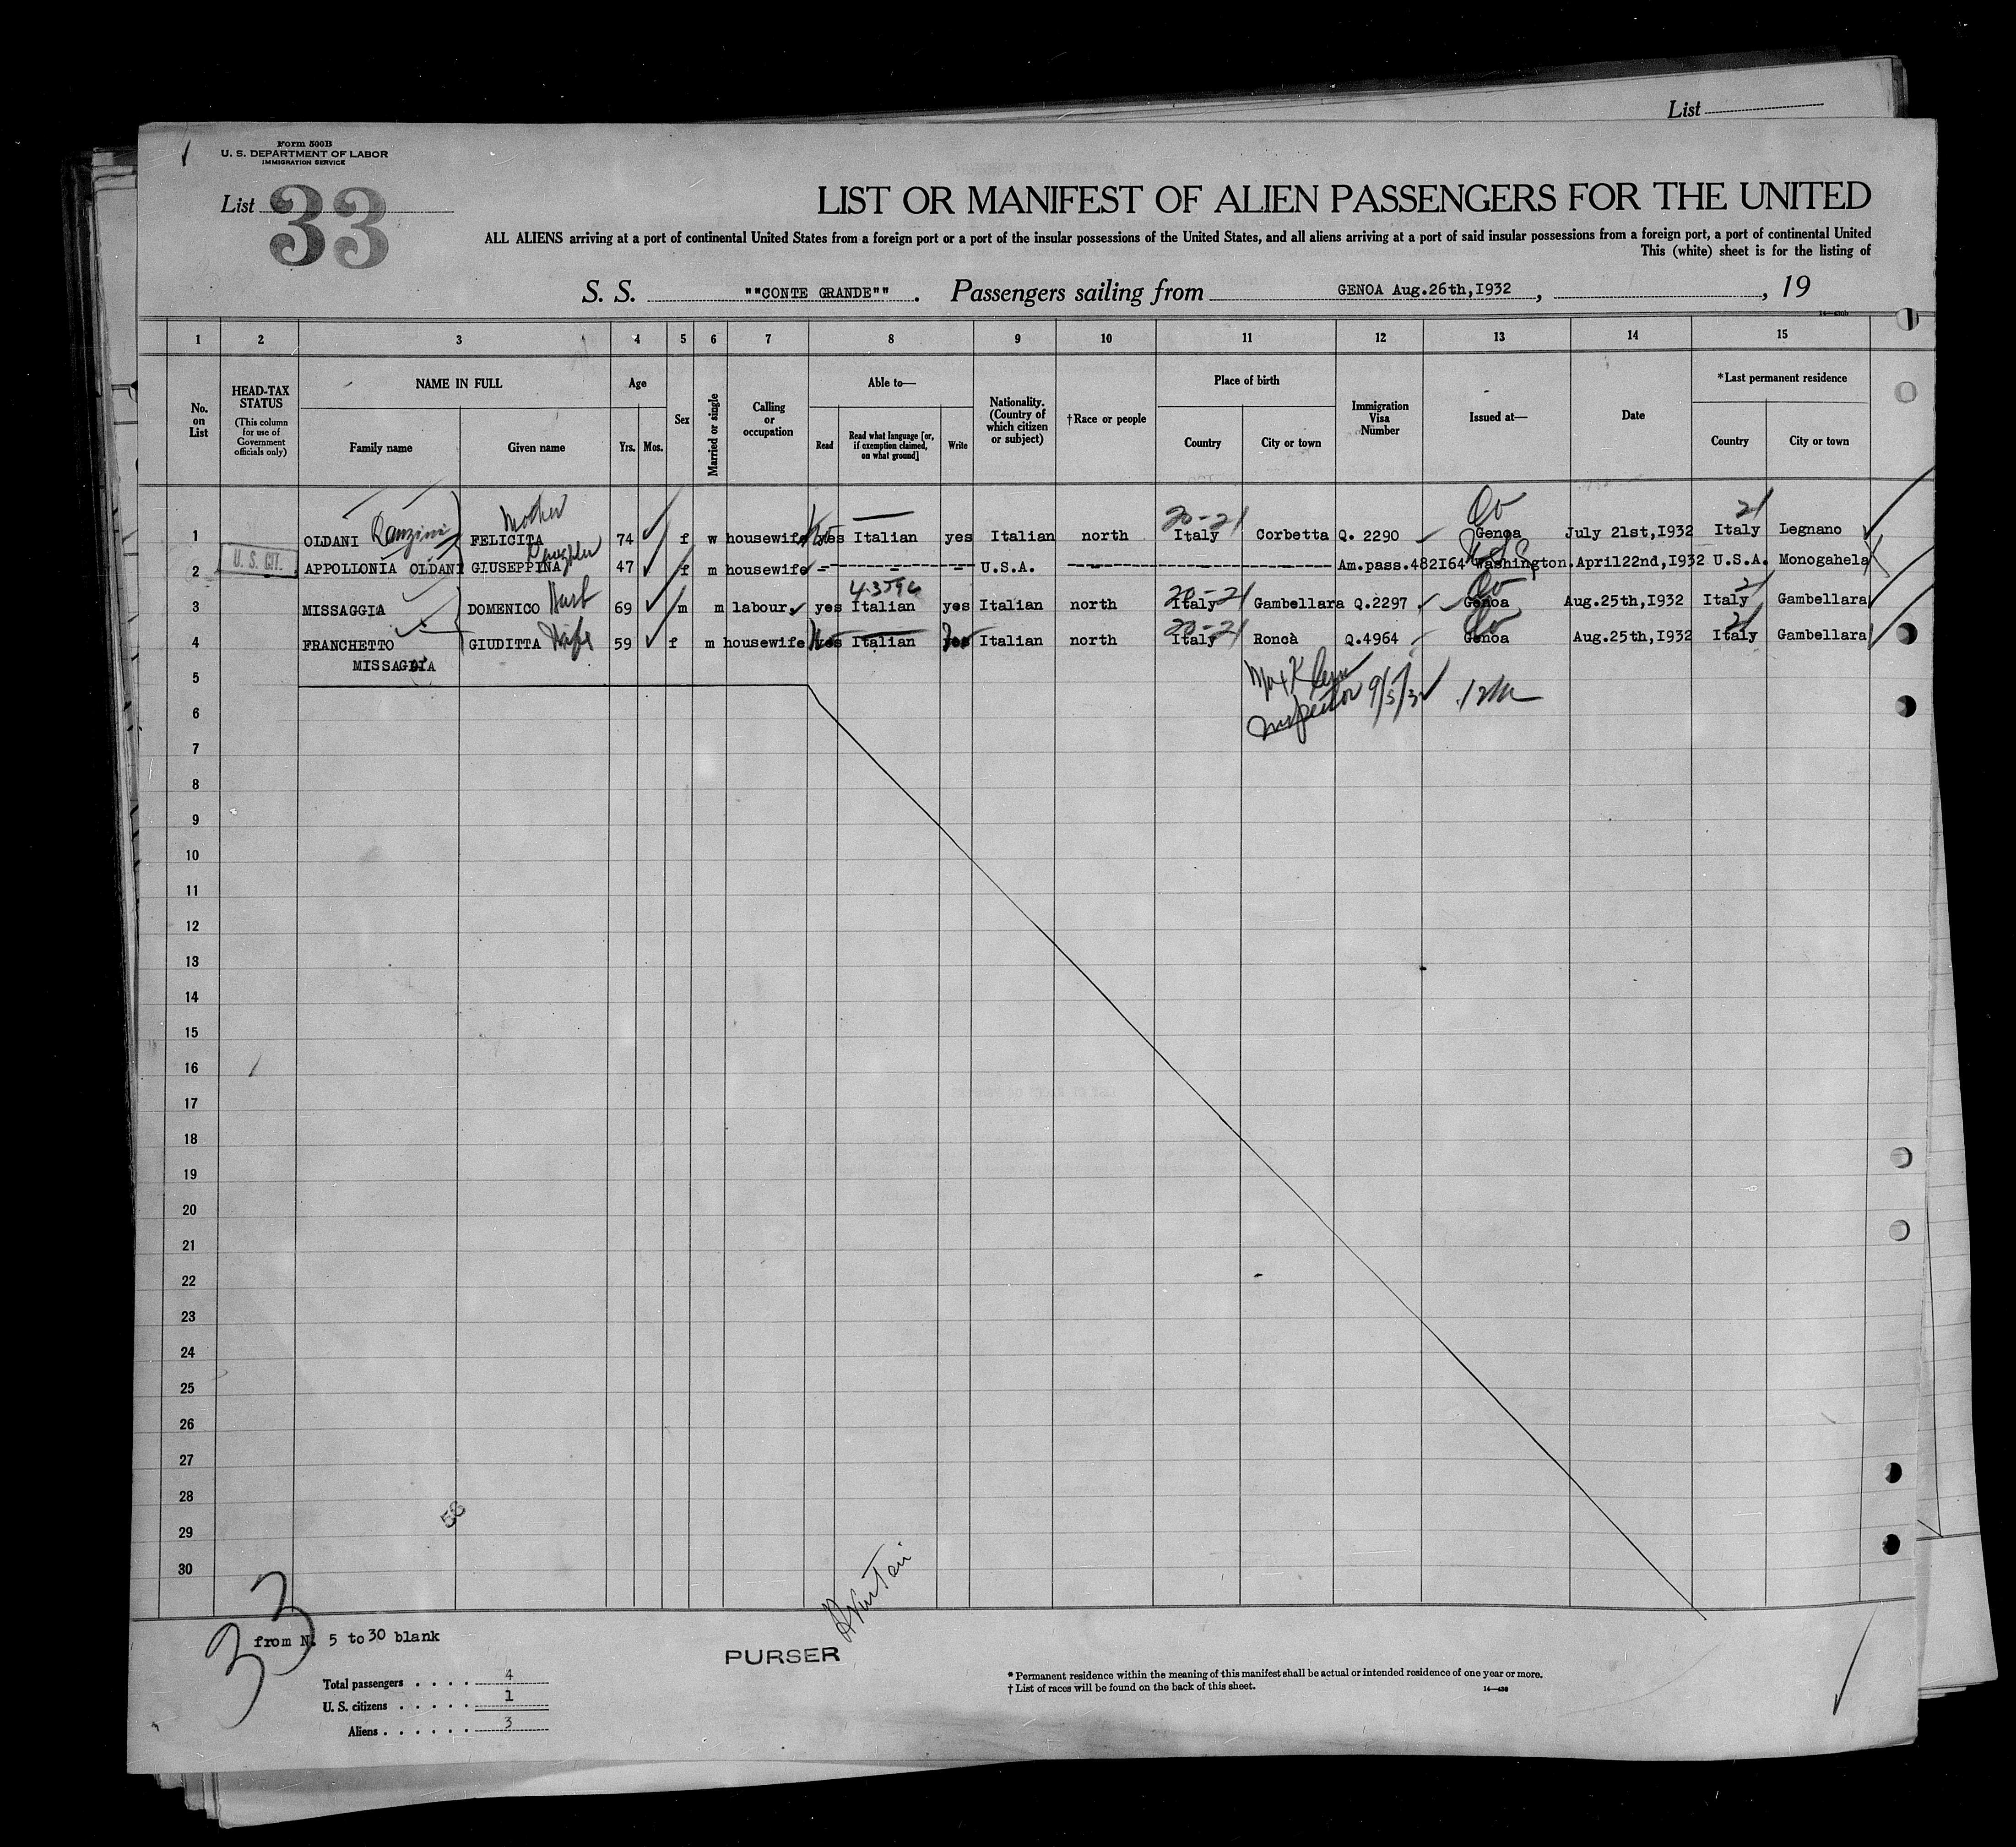 List
Form 500B
U. S. DEPARTMENT OF LABOR
IMMIGRATION SERVICE
List 33
LIST OR MANIFEST OF ALIEN PASSENGERS FOR THE UNITED
ALL ALIENS arriving at a port of continental United States from a foreign port or a port of the insular possessions of the United States, and all aliens arriving at a port of said insular possessions from a foreign port, a port of continental United
This (white) sheet is for the listing of
S. S. ""CONTE GRANDE"" . Passengers sailing from GENOA Aug.26th,I932 , , 19
14—430b
1 2 3 4 5 6 7 8 9 10 11 12 13 14 15
No. on List
HEAD-TAX STATUS
(This column for use of Government officials only)
NAME IN FULL
Family name Given name
Age
Yrs. Mos.
Sex
Married or single
Calling or occupation
Able to—
Read Read what language [or, if exemption claimed, on what ground] Write
Nationality. (Country of which citizen or subject)
†Race or people
Place of birth
Country City or town
Immigration Visa Number
Issued at—
Date
*Last permanent residence
Country City or town
Mother 20-21 21
1 OLDANI Ranzini FELICITA 74 f w housewife yes Italian yes Italian north Italy Corbetta Q. 2290 Genoa July 21st,I932 Italy Legnano
U. S. CIT. Daughter
2 APPOLLONIA OLDANI GIUSEPPINA 47 f m housewife - - - U.S.A. Am.pass.482I64 Washington.April22nd,I932 U.S.A. Monogahela
43596 20-21 21
3 MISSAGGIA DOMENICO Husb 69 m m labour. yes Italian yes Italian north Italy Gambellara Q.2297 Genoa Aug.25th,I932 Italy Gambellara
20-21 21
4 FRANCHETTO GIUDITTA Wife 59 f m housewife yes Italian yes Italian north Italy Roncà Q.4964 Genoa Aug.25th,I932 Italy Gambellara
MISSAGGIA
5
Inspector 9/5/32
6
7
8
9
10
11
12
13
14
15
16
17
18
19
20
21
22
23
24
25
26
27
28
56
29
30
33
from N. 5 to 30 blank
PURSER
Total passengers . . . . 4
U. S. citizens . . . . . 1
Aliens . . . . . . 3
* Permanent residence within the meaning of this manifest shall be actual or intended residence of one year or more.
† List of races will be found on the back of this sheet.
14—430